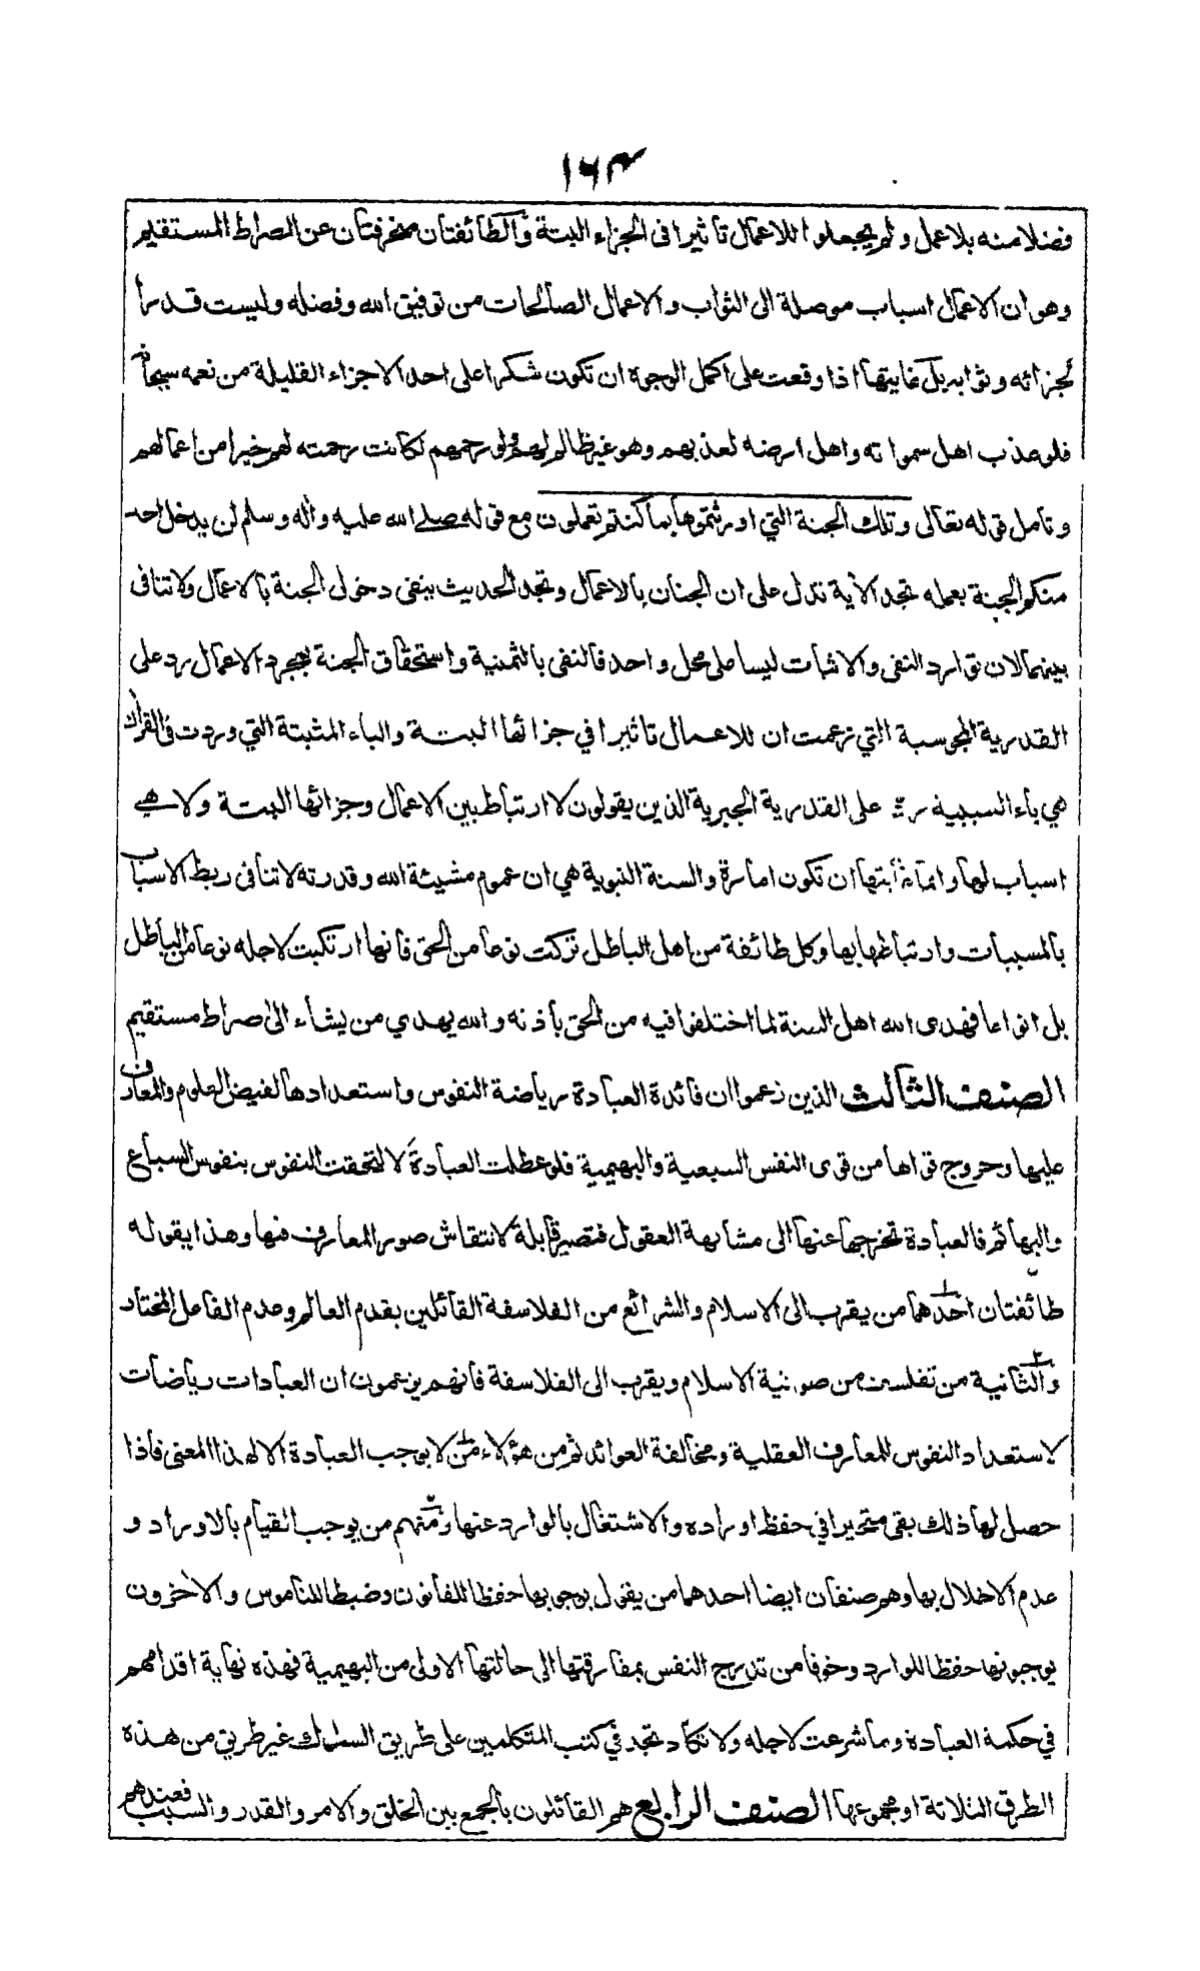 ١٦٣
فضلا منه بلا عمل ولم يجعلوا للاعمال تاثيرا في الجزاء البتة والطائفتان منحرفتان عن الصراط المستقيم
وهو ان الاعمال اسباب موصلة الى الثواب والاعمال الصالحات من توفيق الله وفضله وليست قدرا
لجزائه وثوابه بل غايتها اذا وقعت على اكمل الوجوه ان تكون شكرا على احد الاجزاء القليلة من نعمه سبحانه
فلو عذب اهل سمواته واهل ارضه لعذبهم وهو غير ظالم لهم ولو رحمهم لكانت رحمته لهم خيرا من اعمالهم
وتامل قوله تعالى وتلك الجنة التي اورثتموها بما كنتم تعملون مع قوله صلى الله عليه واله وسلم لن يدخل احد
منكم الجنة بعمله تجد الاية تدل على ان الجنان بالاعمال وتجد الحديث ينفى دخول الجنة بالاعمال ولا تنافى
بينهما لان توارد النفى والاثبات ليسا على محل واحد فالنفى بالثمنية واستحقاق الجنة بمجرد الاعمال رد على
القدرية المجوسية التي زعمت ان للاعمال تاثيرا في جزائها البتة والباء المثبتة التي وردت في القران
هي باء السببية رد على القدرية الجبرية الذين يقولون لا ارتباط بين الاعمال وجزائها البتة ولا هي
اسباب لها وانما غايتها ان تكون امارة والسنة النبوية هي ان عموم مشيئة الله وقدرته لا تنافى ربط الاسباب
بالمسببات وارتباطها بها وكل طائفة من اهل الباطل تركت نوعا من الحق فانها ارتكبت لاجله نوعا من الباطل
بل انواعا فهدى الله اهل السنة لما اختلفوا فيه من الحق باذنه والله يهدي من يشاء الى صراط مستقيم
الصنف الثالث الذين زعموا ان فائدة العبادة رياضة النفوس واستعدادها لفيض العلوم والمعارف
عليها وخروج قواها من قوى النفس السبعية والبهيمية فلو عطلت العبادة لالتحقت النفوس بنفوس السباع
والبهائم فالعبادة تخرجها عنها الى مشابهة العقول فتصير قابلة لانتقاش صور المعارف فيها وهذا يقوله
طائفتان احدهما من يقرب الى الاسلام والشرائع من الفلاسفة القائلين بقدم العالم وعدم الفاعل المختار
والثانية من تفلسف من صوفية الاسلام ويقرب الى الفلاسفة فانهم يزعمون ان العبادات رياضات
لاستعداد النفوس للمعارف العقلية ومخالفة العوائد ثم من هؤلاء من لا يوجب العبادة الا لهذا المعنى فاذا
حصل لها ذلك بقى متحيرا في حفظ اوراده والاشتغال بالوارد عنها ومنهم من يوجب القيام بالاوراد و
عدم الاخلال بها وهم صنفان ايضا احدهما من يقول بوجوبها حفظا للقانون وضبطا للناموس والاخرون
يوجبونها حفظا للوارد وخوفا من تدرج النفس بمفارقتها الى حالتها الاولى من البهيمية فهذه نهاية اقدامهم
في حكمة العبادة وما شرعت لاجله ولا تكاد تجد في كتب المتكلمين على طريق السلوك غير طريق من هذه
الطرق الثلاثة او مجموعها الصنف الرابع هم القائلون بالجمع بين الخلق والامر والقدر والسبب فعندهم